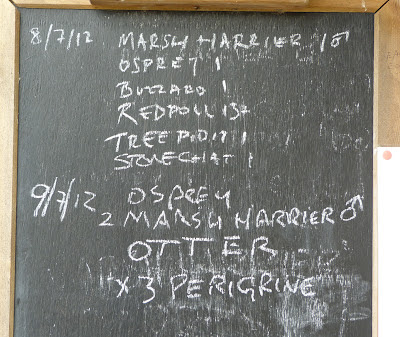 8/7/12 MARSH HARRIER 1♂
OSPREY 1
BUZZARD 1
REDPOLL 13+
TREE PIPIT 1
STONECHAT 1
9/7/12 OSPREY
2 MARSH HARRIER ♂
OTTER
x 3 PERIGRINE